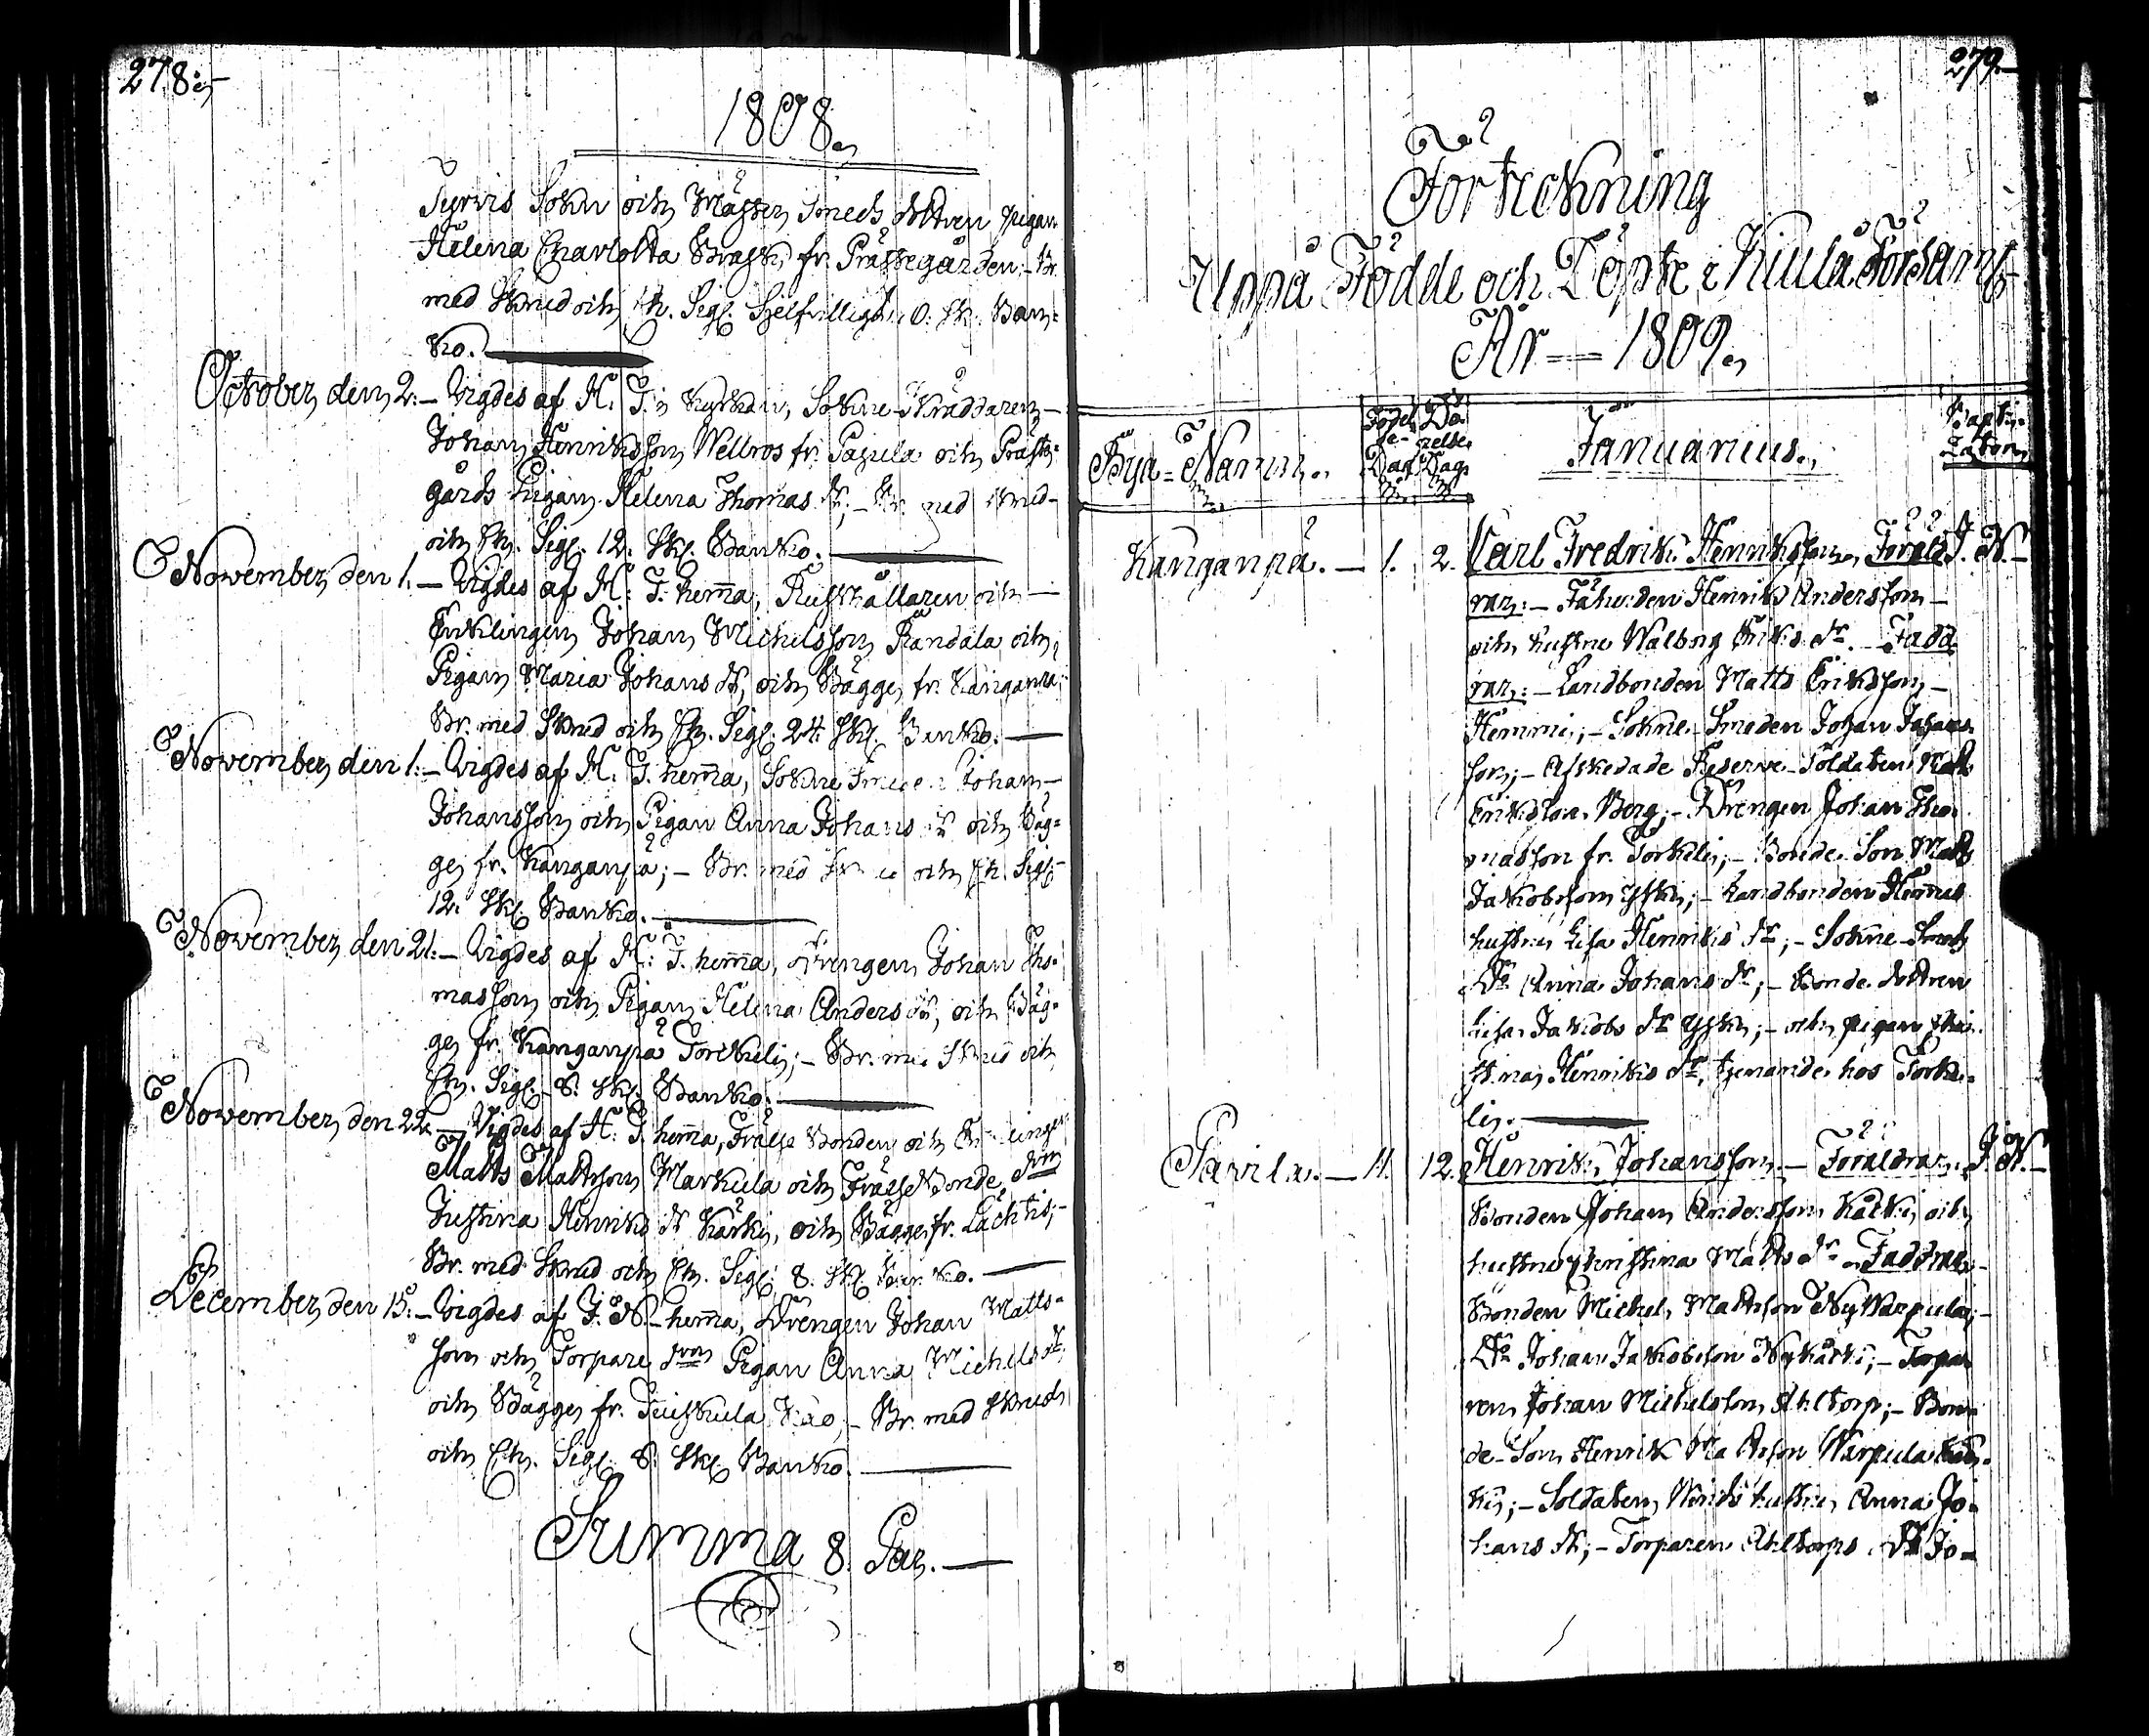 278:
1808.
Tyrvis Sokn och Mästers Smeds dottren Pigan
Helena Charlotta Brask, fr. Prästegården; - Br.
med Skrud och Ch. Sigl. Sjelfvilligt 10. Sk. Ban=
ko.
October den 2. - Vigdes af H. T. i Kyrkan, Sokne Skräddaren
Johan Henriksson Wellros fr. Papula och Präste=
gårds Pigan Helena Thomas dr; - Br. med Skrud
och Ch. Sigl. 12. Skl. Banko.
November den 1. - Vigdes af H. T. hemma, Rusthållaren och
Enklingen Johan Michelsson Randala och
Pigan Maria Johans dr, och Bägge fr. Kanganpä;
Br. med Skrud och Ch. Sigl. 24 Skl. Banko.
November den 1. - Vigdes af H. T. hemma, Sokne Smeden Johan
Johansson och Pigan Anna Johans dr och Bäg=
ge fr. Kanganpä; - Br. med Skrud och Ch. Sigl.
12. Skl. Banko.
November den 21. - Vigdes af H. T. hemma, Drengen Johan Tho=
masson och Pigan Helena Anders dr, och Bäg=
ge fr. Kanganpä Torckeli; - Br. med Skrud och
Ch. Sigl. 8. Skl. Banko.
November den 22. - Vigdes af H. T. hemma, Frälse Bonden och Enklingen
Matts Mattsson Markula och Frälse Bonde dren
Justina Henriks dr Kärki, och Bägge fr. Lächtis;
Br. med Skrud och Ch. Sigl. 8. Skl. Banko.
December den 15. - Vigdes af J. N. hemma, Drengen Johan Matts=
son och Torpare dren Pigan Anna Michels dr,
och Bägge fr. Tuiskula; - Br. med Skrud
och Ch. Sigl. 8. Skl. Banko.
Summa 8. Par.
279.
Förteckning
Uppå Födde och Döpte i Kiula Församl.
År == 1809.
Bya = Namn.
Födel= Dö=
se- pelse
Dag Dag
Januarius.
Bapti=
zator
Kanganpä. - 1. 2. Carl Fredrik Henriksson, Föräld J. N.
rar: - Inhesden Henrik Andersson
och hustru Walborg Eriks dr. Fadd
rar: - Landbonden Matts Eriksson
Hemmi; - Sokne Smeden Johan Johans
son; - Afskedade Reserve Soldaten Matts
Eriksson Berg; - Drengen Johan Tho=
masson fr. Torkeli; - Bonde Son Matts
Jakobsson Yski; - Landbonden Hemmis
hustru Lisa Henriks dr; - Sokne Smeds
Do Anna Johans dr; - Bonde dottren
Lisa Jakobs dr Yski; - och pigan Chri=
stina Henriks dr, tjenande hos Torke=
li.
Pavila. - 11. 12. Henrik Johansson - Föräldrar: J. N.
Bonden Johan Andersson Kärki och
hustru Christina Matts dr - Faddrar
Bonden Michel Mattsson Ny Warpula;
Do Johan Jakobsson Nykärki; - Torpa
ren Johan Michelsson Ahltorp; - Bon=
de Son Henrik Mattsson Warpula
; - Soldaten hustru Anna Jo=
hans dr; - Torparen Ahltorps Do Jo=